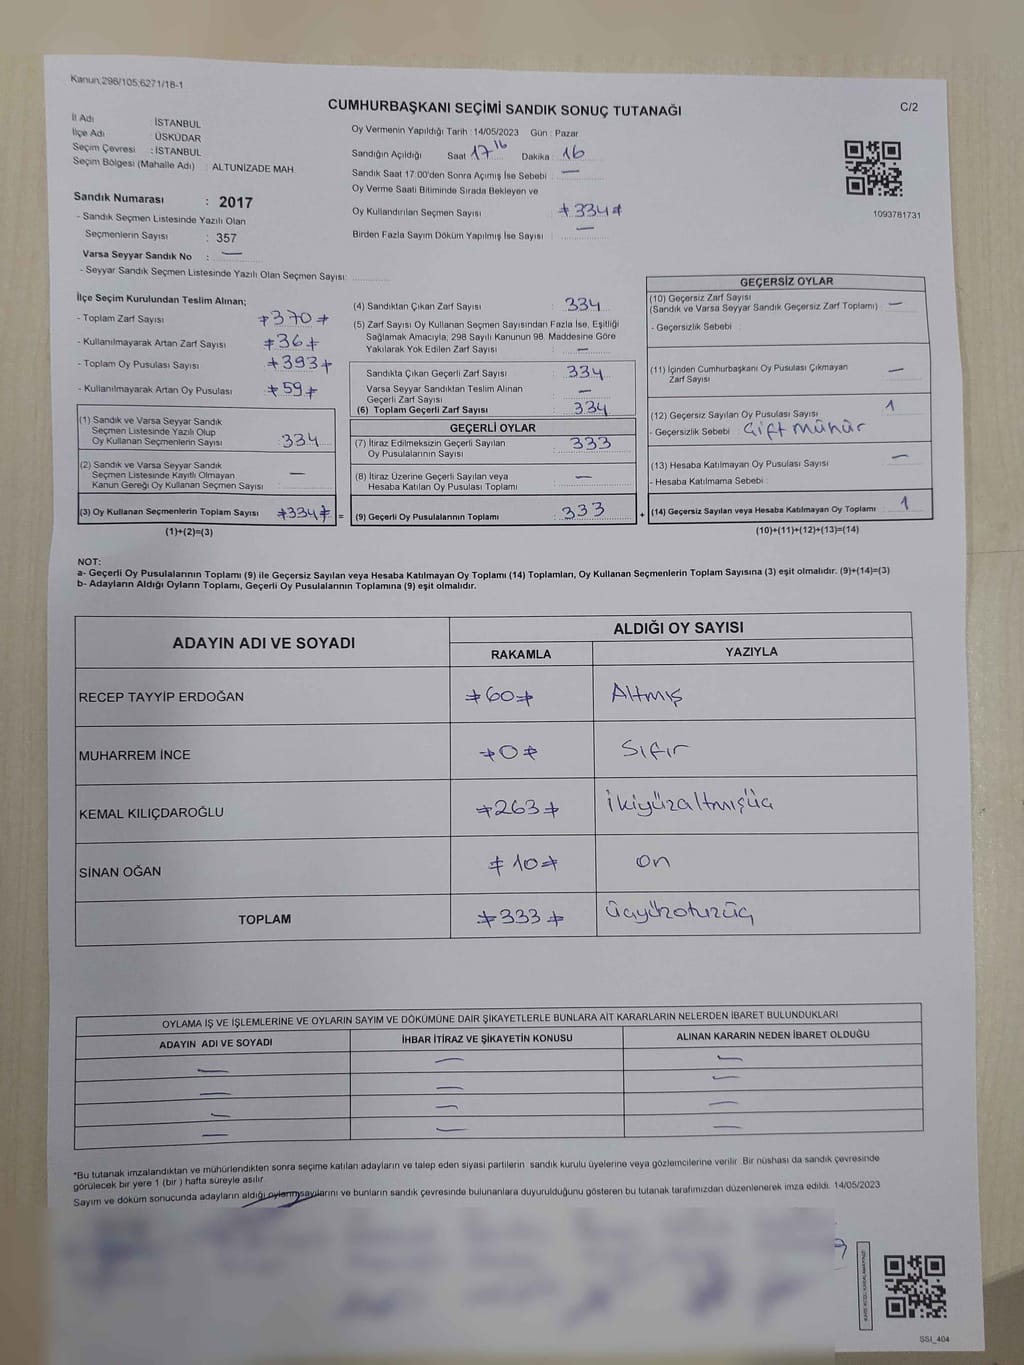 Kanun:298/105;6271/18-1
CUMHURBAŞKANI SEÇİMİ SANDIK SONUÇ TUTANAĞI
C/2
İl Adı : İSTANBUL
İlçe Adı : ÜSKÜDAR
Seçim Çevresi : İSTANBUL
Seçim Bölgesi (Mahalle Adı) : ALTUNİZADE MAH.
Oy Vermenin Yapıldığı Tarih : 14/05/2023 Gün : Pazar
Sandığın Açıldığı Saat 17 16 Dakika : 16
Sandık Saat 17:00'den Sonra Açımış İse Sebebi : —
Oy Verme Saati Bitiminde Sırada Bekleyen ve
Oy Kullandırılan Seçmen Sayısı : ≠334≠
Birden Fazla Sayım Döküm Yapılmış İse Sayısı : —
1093781731
Sandık Numarası : 2017
- Sandık Seçmen Listesinde Yazılı Olan
Seçmenlerin Sayısı : 357
Varsa Seyyar Sandık No : —
- Seyyar Sandık Seçmen Listesinde Yazılı Olan Seçmen Sayısı:
İlçe Seçim Kurulundan Teslim Alınan;
- Toplam Zarf Sayısı : ≠370≠
- Kullanılmayarak Artan Zarf Sayısı : ≠36≠
- Toplam Oy Pusulası Sayısı : ≠393≠
- Kullanılmayarak Artan Oy Pusulası : ≠59≠
(1) Sandık ve Varsa Seyyar Sandık
Seçmen Listesinde Yazılı Olup
Oy Kullanan Seçmenlerin Sayısı : 334
(2) Sandık ve Varsa Seyyar Sandık
Seçmen Listesinde Kayıtlı Olmayan
Kanun Gereği Oy Kullanan Seçmen Sayısı : —
(3) Oy Kullanan Seçmenlerin Toplam Sayısı : ≠334≠ =
(1)+(2)=(3)
(4) Sandıktan Çıkan Zarf Sayısı : 334
(5) Zarf Sayısı Oy Kullanan Seçmen Sayısından Fazla İse, Eşitliği
Sağlamak Amacıyla; 298 Sayılı Kanunun 98. Maddesine Göre
Yakılarak Yok Edilen Zarf Sayısı : —
Sandıkta Çıkan Geçerli Zarf Sayısı : 334
Varsa Seyyar Sandıktan Teslim Alınan
Geçerli Zarf Sayısı : —
(6) Toplam Geçerli Zarf Sayısı : 334
GEÇERLİ OYLAR
(7) İtiraz Edilmeksizin Geçerli Sayılan
Oy Pusulalarının Sayısı : 333
(8) İtiraz Üzerine Geçerli Sayılan veya
Hesaba Katılan Oy Pusulası Toplamı : —
(9) Geçerli Oy Pusulalarının Toplamı : 333 +
GEÇERSİZ OYLAR
(10) Geçersiz Zarf Sayısı
(Sandık ve Varsa Seyyar Sandık Geçersiz Zarf Toplamı) : —
- Geçersizlik Sebebi :
(11) İçinden Cumhurbaşkanı Oy Pusulası Çıkmayan
Zarf Sayısı : —
(12) Geçersiz Sayılan Oy Pusulası Sayısı : 1
- Geçersizlik Sebebi : Çift mühür
(13) Hesaba Katılmayan Oy Pusulası Sayısı : —
- Hesaba Katılmama Sebebi :
(14) Geçersiz Sayılan veya Hesaba Katılmayan Oy Toplamı : 1
(10)+(11)+(12)+(13)=(14)
NOT:
a- Geçerli Oy Pusulalarının Toplamı (9) ile Geçersiz Sayılan veya Hesaba Katılmayan Oy Toplamı (14) Toplamları, Oy Kullanan Seçmenlerin Toplam Sayısına (3) eşit olmalıdır. (9)+(14)=(3)
b- Adayların Aldığı Oyların Toplamı, Geçerli Oy Pusulalarının Toplamına (9) eşit olmalıdır.
ADAYIN ADI VE SOYADI
ALDIĞI OY SAYISI
RAKAMLA YAZIYLA
RECEP TAYYİP ERDOĞAN ≠60≠ Altmış
MUHARREM İNCE ≠0≠ Sıfır
KEMAL KILIÇDAROĞLU ≠263≠ İkiyüzaltmışüç
SİNAN OĞAN ≠10≠ On
TOPLAM ≠333≠ Üçyüzotuzüç
OYLAMA İŞ VE İŞLEMLERİNE VE OYLARIN SAYIM VE DÖKÜMÜNE DAİR ŞİKAYETLERLE BUNLARA AİT KARARLARIN NELERDEN İBARET BULUNDUKLARI
ADAYIN ADI VE SOYADI İHBAR İTİRAZ VE ŞİKAYETİN KONUSU ALINAN KARARIN NEDEN İBARET OLDUĞU
— — —
— — —
— — —
— — —
*Bu tutanak imzalandıktan ve mühürlendikten sonra seçime katılan adayların ve talep eden siyasi partilerin sandık kurulu üyelerine veya gözlemcilerine verilir. Bir nüshası da sandık çevresinde
görülecek bir yere 1 (bir ) hafta süreyle asılır.
Sayım ve döküm sonucunda adayların aldığı oyların sayılarını ve bunların sandık çevresinde bulunanlara duyurulduğunu gösteren bu tutanak tarafımızdan düzenlenerek imza edildi. 14/05/2023
SSI_404